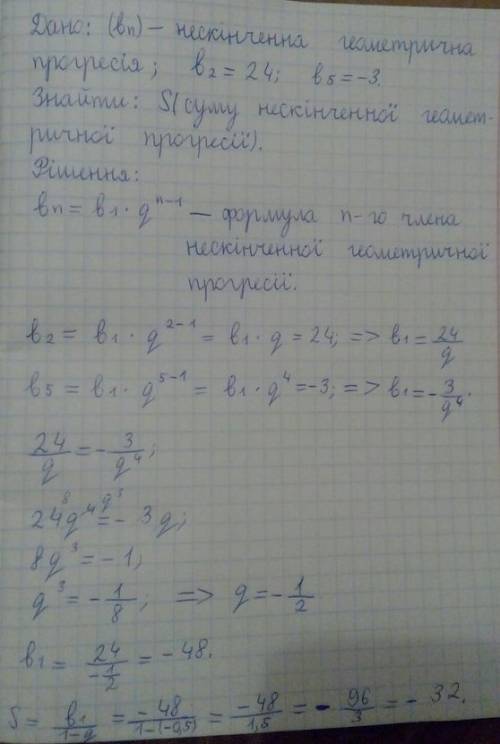 Дано: (вn) – нескінченна геометрична
прогресія; в₂ = 24; в₅ = -3.
Знайти: S(суму нескінченної геомет-
ричної прогресії).
Рішення:
вn = в₁ · q^(n-1) – формула n-го члена
нескінченної геометричної
прогресії.
в₂ = в₁ · q^(2-1) = в₁ · q = 24; => в₁ = 24/q
в₅ = в₁ · q^(5-1) = в₁ · q⁴ = -3; => в₁ = -3/q⁴.
24/q = -3/q⁴;
8 q³
24q⁴ = - 3q;
8q³ = - 1;
q³ = -1/8; => q = -1/2
в₁ = 24/(-1/2) = - 48.
S = в₁/(1-q) = -48/(1-(-0,5)) = -48/1,5 = - 96/3 = - 32.